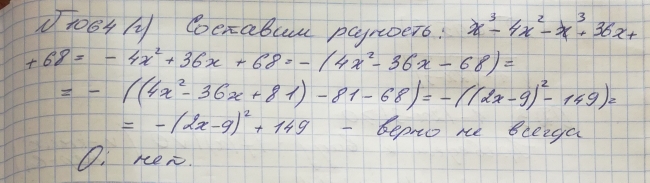 № 1064 (г) Составим разность: x³ - 4x² - x³ + 36x +
+ 68 = - 4x² + 36x + 68 = - (4x² - 36x - 68) =
= - ((4x² - 36x + 81) - 81 - 68) = - ((2x - 9)² - 149) =
= - (2x - 9)² + 149 - верно не всегда
О: нет.